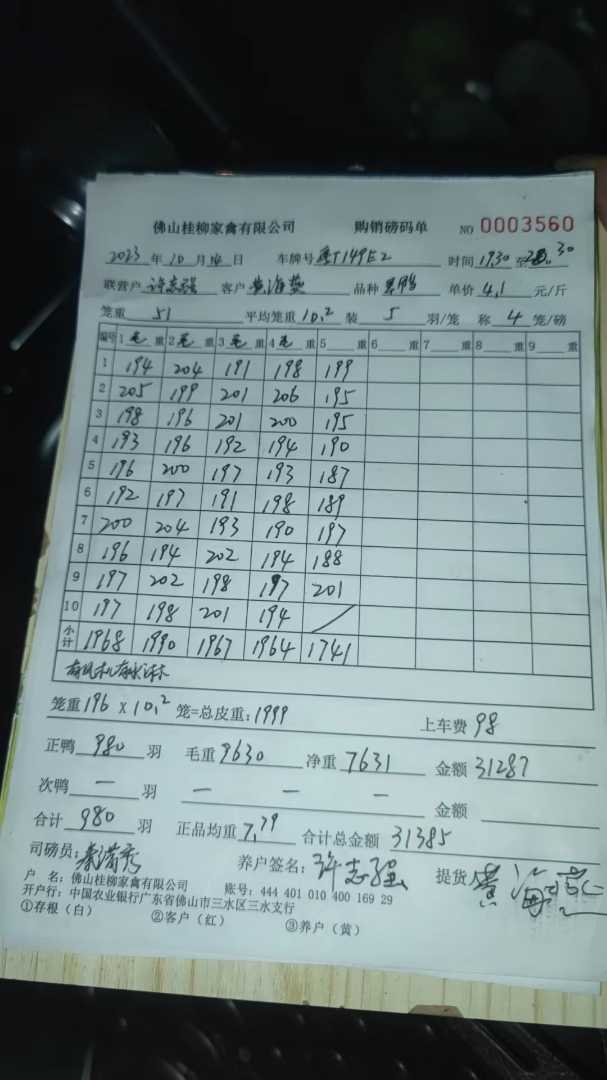 佛山桂柳家禽有限公司 购销磅码单 NO 0003560
2023年10月 日 车牌号粤T149E2 时间1930至 .30
联营户许志强 客户黄海燕 品种 单价4.1元/斤
笼重51 平均笼重10.2 装5羽/笼 称4笼/磅
编号 1毛重 2毛重 3毛重 4毛重 5 重 6 重 7 重 8 重 9 重
1 194 204 191 198 199
2 205 199 201 206 195
3 198 196 201 200 195
4 193 196 192 194 190
5 196 200 197 193 187
6 192 197 191 198 189
7 200 204 193 190 197
8 196 194 202 194 188
9 197 202 198 197 201
10 197 198 201 194 /
小计 1968 1990 1967 1964 1741
有风机有水淋
笼重196×10.2笼=总皮重:1999 上车费98
正鸭980羽 毛重9630 净重7631 金额31287
次鸭—羽 — — — 金额
合计980羽 正品均重7.79 合计总金额31385
司磅员: 养户签名:许志强 提货人 黄海燕
户 名:佛山桂柳家禽有限公司 账号:444 401 010 400 169 29
开户行:中国农业银行广东省佛山市三水区三水支行
①存根(白) ②客户(红) ③养户(黄)